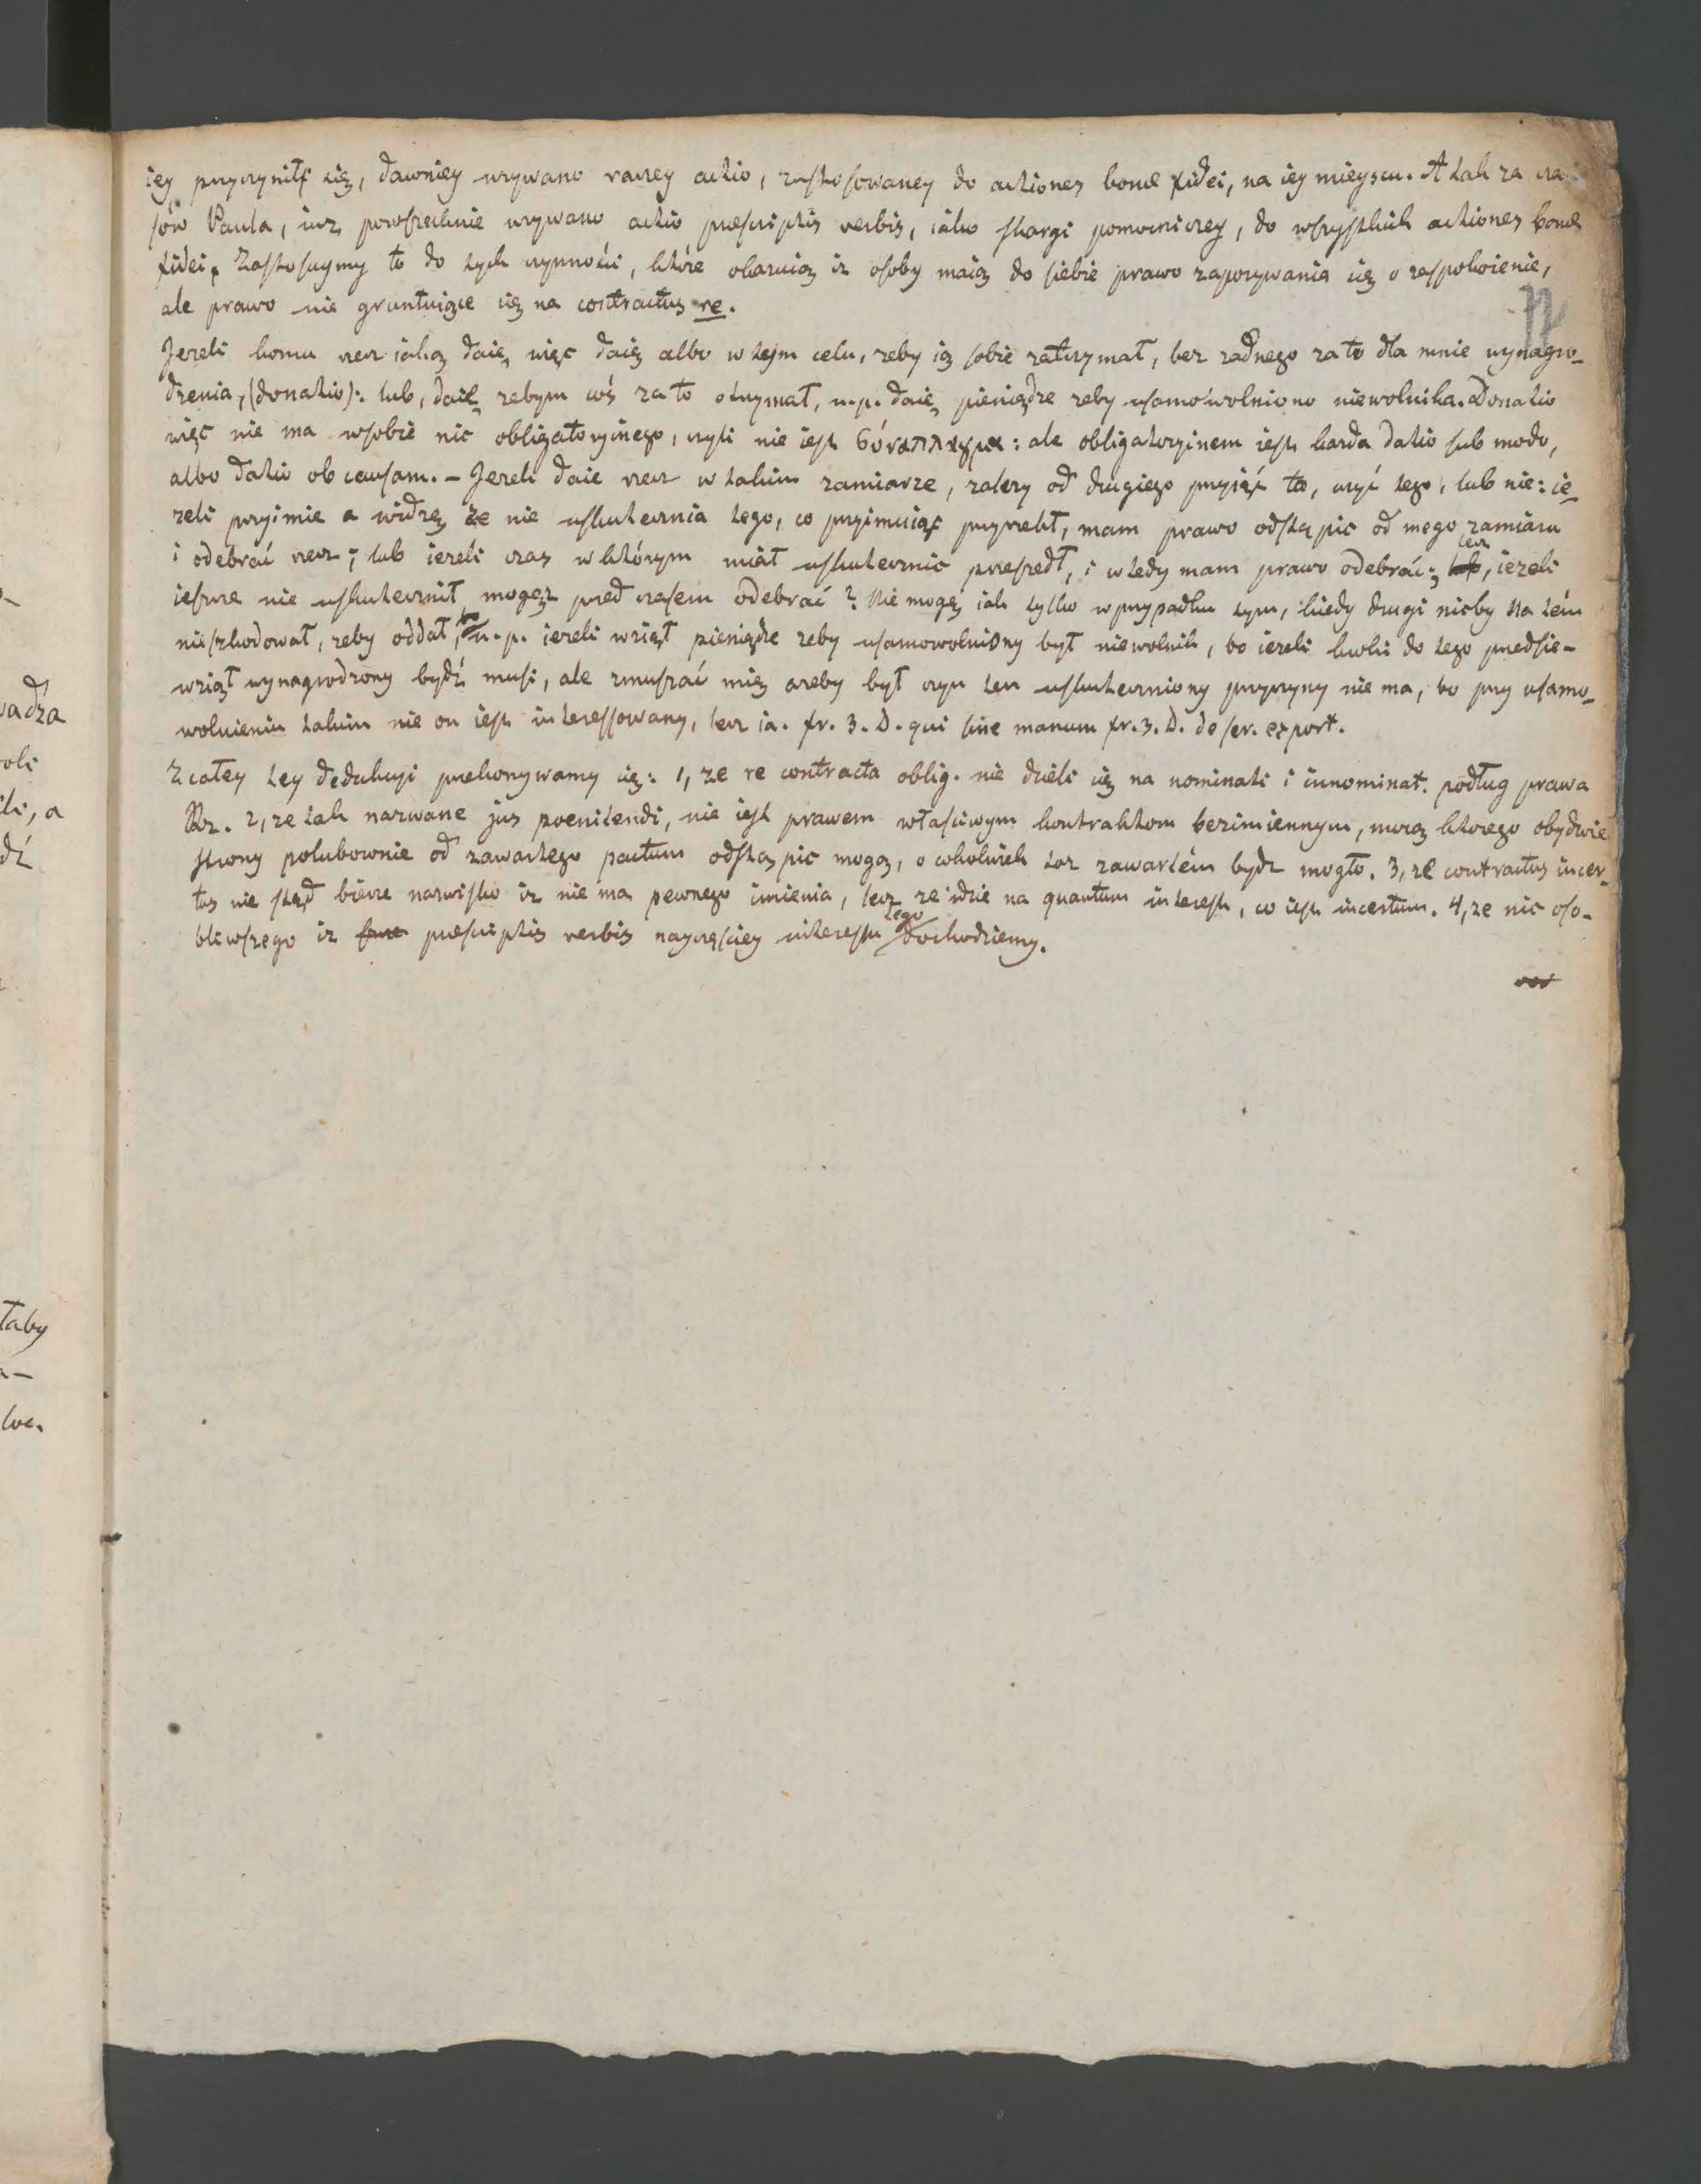 iey przyczynił się, dawniey używano raczey actio, zastosowaney do actiones bonæ fidei, na iey mieyscu. A tak za cza-
sów Paula, iuż powszechnie używano actio præscriptis verbis, iako skargi pomocniczey, do wszystkich actiones bonæ
fidei. Zastosuymy to do tych czynności, które okazuią iż osoby maią do siebie prawo zapozywania się o zaspokoienie,
ale prawo nie gruntuiące się na contractus re.
Jezeli komu rzecz iaką daię, więc daię albo w tym celu, zeby ią sobie zatrzymał, bez zadnego za to dla mnie wynagro-
dzenia, (donatio): lub, daię zebym coś za to otrzymał, n.p. daię pieniądze zeby usamowolniono niewolnika. Donatio
więc nie ma w sobie nic obligatoryinego, czyli nie iest συναλλαγμα: ale obligatoryinem iest każda datio sub modo,
albo datio ob causam. – Jezeli daie rzecz w takim zamiarze, zalezy od drugiego przyiąć to, czyć tego, lub nie: ie-
zeli przyimie a widzę że nie uskutecznia tego, co przyimuiąc przyrzekł, mam prawo odstąpic od mego zamiaru
i odebrać rzecz; lub iezeli czas w którym miał uskutecznic przeszedł, i wtedy mam prawo odebrać; lecz, iezeli
ieszcze nie uskutecznił mogęż przed czasem odebrać? Nie mogę iak tylko w przypadku tym, kiedy drugi nicby na tém
nieszkodował, zeby oddał, n.p. iezeli wziął pieniądze zeby usamowolniony był niewolnik, bo iezeli kroki do tego przedsie-
wziął wynagrodzony bydź musi, ale zmuszać mię azeby był czyn ten uskuteczniony przyczyny nie ma, bo przy usamo-
wolnieniu takim nie on iest interessowany, lecz ia. fr. 3. D. qui sine manum fr. 3. D. de ser. export.
Z całey tey dedukcyi przekonywamy się: 1, ze re contracta oblig. nie dzieli się na nominati i innominat. podług prawa
Rz. 2, ze tak nazwane jus poenitendi, nie iest prawem właściwym kontraktom bezimiennym, mocą którego obydwie
strony polubownie od zawartego pactum odstąpic mogą, o cokolwiek toż zawartém bydz mogło. 3, ze contractus incer-
tus nie ztąd bierze nazwisko iż nie ma pewnego imienia, lecz ze idzie na quantum interest, co iest incertum. 4, ze nic oso-
bliwszego iz præscriptis verbis nayczęściey interessu tego dochodziemy.